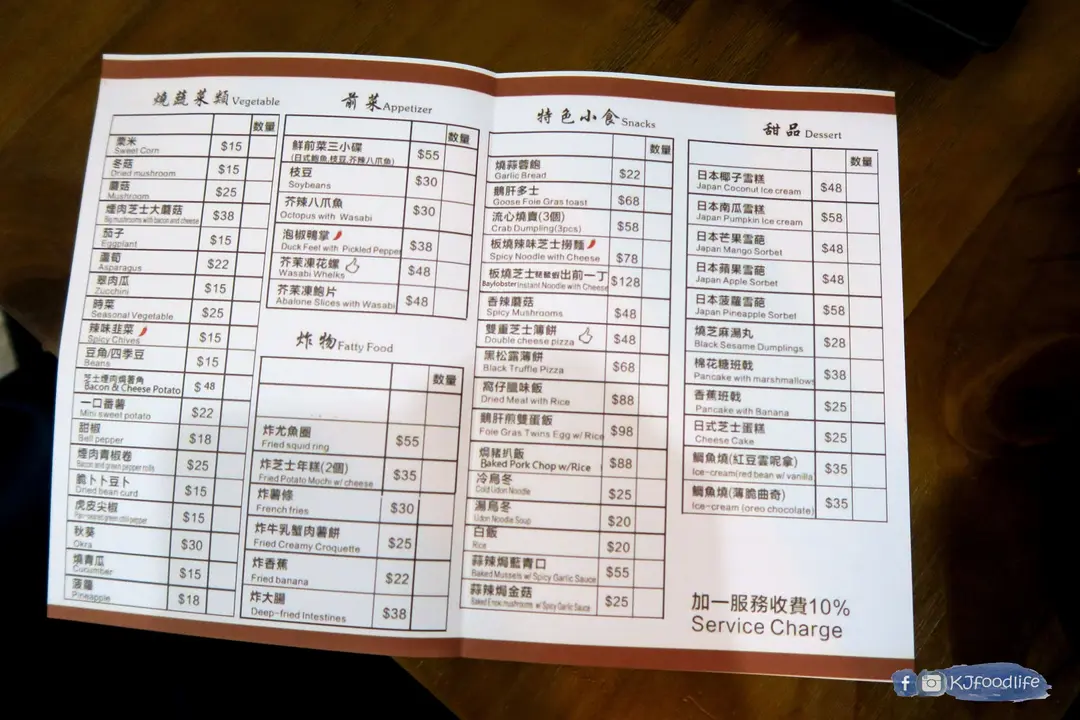 燒蔬菜類 Vegetable
数量
粟米
Sweet Corn
$15
冬菇
Dried mushroom
$15
蘑菇
Mushroom
$25
煙肉芝士大蘑菇
Big mushrooms with bacon and cheese
$38
茄子
Eggplant
$15
蘆筍
Asparagus
$22
翠肉瓜
Zucchini
$15
時菜
Seasonal Vegetable
$25
辣味韭菜
Spicy Chives
$15
豆角/四季豆
Beans
$15
芝士煙肉焗薯角
Bacon & Cheese Potato
$48
一口番薯
Mini sweet potato
$22
甜椒
Bell pepper
$18
煙肉青椒卷
Bacon and green pepper rolls
$25
脆卜卜豆卜
Dried bean curd
$15
虎皮尖椒
green chili pepper
$15
秋葵
Okra
$30
燒青瓜
Cucumber
$15
菠蘿
Pineapple
$18
前菜 Appetizer
数量
鮮前菜三小碟
(日式鮑魚,枝豆,芥辣八爪魚)
$55
枝豆
Soybeans
$30
芥辣八爪魚
Octopus with Wasabi
$30
泡椒鴨掌
Duck Feet with Pickled Pepper
$38
芥茉凍花螺
Wasabi Whelks
$48
芥茉凍鮑片
Abalone Slices with Wasabi
$48
炸物 Fatty Food
数量
炸尤魚圈
Fried squid ring
$55
炸芝士年糕(2個)
Fried Potato Mochi w/ cheese
$35
炸薯條
French fries
$30
炸牛乳蟹肉薯餅
Fried Creamy Croquette
$25
炸香蕉
Fried banana
$22
炸大腸
Deep-fried Intestines
$38
特色小食 Snacks
数量
燒蒜蓉飽
Garlic Bread
$22
鵝肝多士
Goose Foie Gras toast
$68
流心燒賣(3個)
Crab Dumpling(3pcs)
$58
板燒辣味芝士撈麵
Spicy Noodle with Cheese
$78
板燒芝士琵琶蝦出前一丁
Baylobster Instant Noodle with Cheese
$128
香辣蘑菇
Spicy Mushrooms
$48
雙重芝士薄餅
Double cheese pizza
$48
黑松露薄餅
Black Truffle Pizza
$68
窩仔臘味飯
Dried Meat with Rice
$88
鵝肝煎雙蛋飯
Foie Gras Twins Egg w/ Rice
$98
焗豬扒飯
Baked Pork Chop w/Rice
$88
冷烏冬
Cold Udon Noodle
$25
湯烏冬
Udon Noodle Soup
$20
白飯
Rice
$20
蒜辣焗藍青口
Baked Mussels w/ Spicy Garlic Sauce
$55
蒜辣焗金菇
Baked Enoki mushrooms w/ Spicy Garlic Sauce
$25
甜品 Dessert
数量
日本椰子雪糕
Japan Coconut Ice cream
$48
日本南瓜雪糕
Japan Pumpkin Ice cream
$58
日本芒果雪葩
Japan Mango Sorbet
$48
日本蘋果雪葩
Japan Apple Sorbet
$48
日本菠蘿雪葩
Japan Pineapple Sorbet
$58
燒芝麻湯丸
Black Sesame Dumplings
$28
棉花糖班戟
Pancake with marshmallows
$38
香蕉班戟
Pancake with Banana
$25
日式芝士蛋糕
Cheese Cake
$25
鯛魚燒(紅豆雲呢拿)
Ice-cream(red bean w/ vanilla
$35
鯛魚燒(薄脆曲奇)
Ice-cream (oreo chocolate)
$35
加一服務收費10%
Service Charge
KJfoodlife